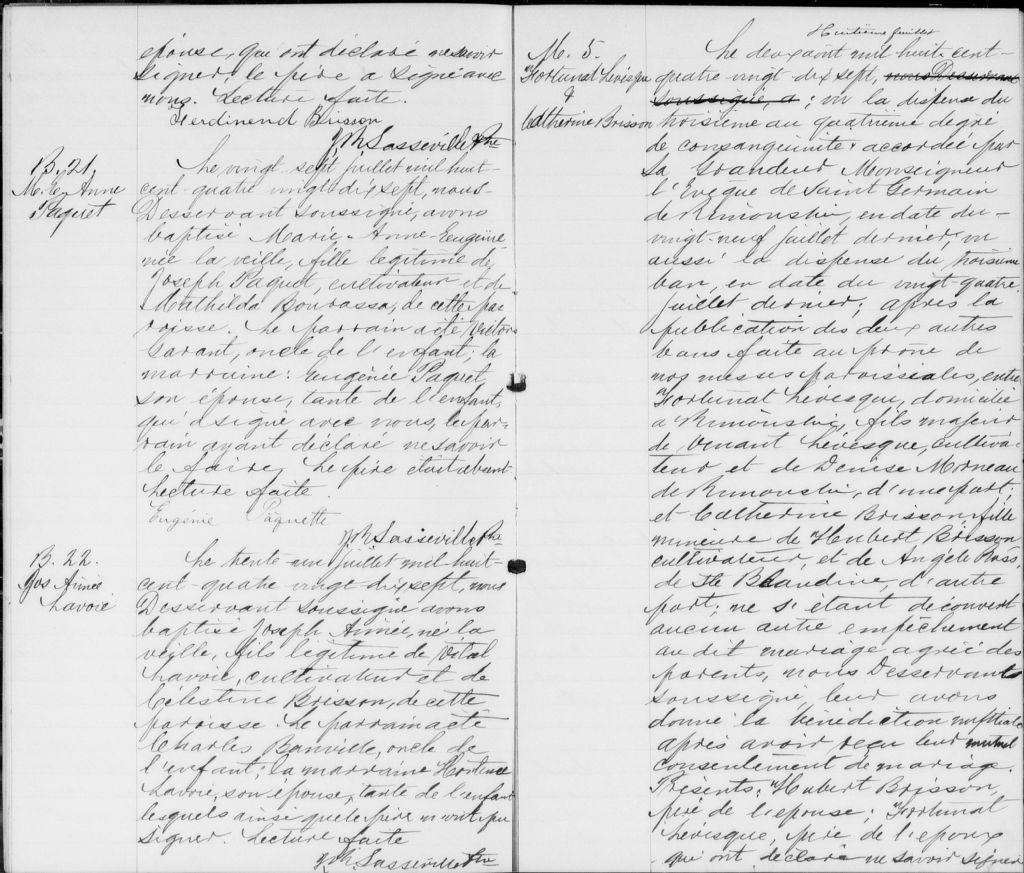 épouse, qui ont déclaré ne savoir
signer, le père a signé avec
nous. Lecture faite.
Ferdinend Brisson
Sasseville Ptre
B. 21.
M. Anne
Paquet
Le vingt-sept juillet mil huit-
cent-quatre vingt dix sept, nous-
Desservant soussigné, avons
baptisé Marie-Anne-Eugénie
née la veille, fille légitime de
Joseph Paquet, cultivateur et de
Mathilda Bourassa, de cette pa-
roisse. Le parrain a été Victor
Garant, oncle de l'enfant; la
marraine: Eugénie Paquet,
son épouse, tante de l'enfant,
qui a signé avec nous, le par-
rain ayant déclaré ne savoir
le faire. Le père était absent
Lecture faite.
Eugénie Paquette
Sasseville Ptre
B. 22.
Jos Aimée
Lavoie
Le trente-un juillet mil-huit-
cent-quatre vingt dix sept, nous
Desservant soussigné avons
baptisé Joseph Aimée, né la
veille, fils légitime de Vital
Lavoie, cultivateur et de
Célestine Brisson, de cette
paroisse. Le parrain a été
Charles Banville, oncle de
l'enfant; la marraine Hortense
Lavoie, son épouse, tante de l'enfant
lesquels ainsi que le père n'ont pu
signer. Lecture faite
Sasseville Ptre
M. 5.
Fortunat Lévesque
&
Catherine Brisson
Le deux août mil huit cent-
quatre vingt dix sept, nous Desservant
soussigné, a ; vu la dispense du
troisième au quatrième degré
de consanguinité accordée par
Sa Grandeur Monseigneur
l'Evêque de Saint Germain
de Rimouski, en date du-
vingt-neuf juillet dernier, vu
aussi la dispense du troisième
ban, en date du vingt-quatre
juillet dernier; après la
publication des deux autres
bans faite au prône de
nos messes paroissiales, entre
Fortunat Lévesque, domicilié
à Rimouski, fils majeur
de Venant Lévesque, cultiva-
teur et de Denise Morneau
de Rimouski, d'une part;
et Catherine Brisson, fille
mineure de Hubert Brisson
cultivateur, et de Angèle Ross,
de Ste Blandine, d'autre
part; ne s'étant découvert
aucun autre empêchement
au dit mariage agréé des
parents, nous Desservant
soussigné, leur avons
donné la bénédiction nuptiale
après avoir reçu leur mutuel
consentement de mariage.
Présents: Hubert Brisson,
père de l'épouse; Fortunat
Lévesque, père de l'époux
qui ont déclaré ne savoir signer